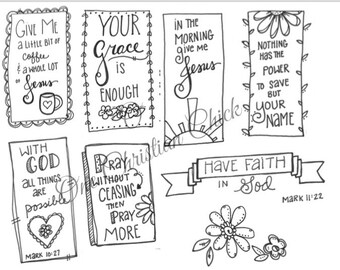 GIVE ME
a little bit of
coffee
& a whole lot
of
Jesus
YOUR
Grace
is
ENOUGH
IN THE
MORNING
give me
Jesus
NOTHING
HAS THE
POWER
TO SAVE
BUT
YOUR
NAME
WITH
GOD
ALL THINGS
ARE
possible
MARK 10:27
PRAY
WITHOUT
CEASING
THEN
PRAY
MORE
HAVE FAITH
IN God
MARK 11:22
Christian Chick